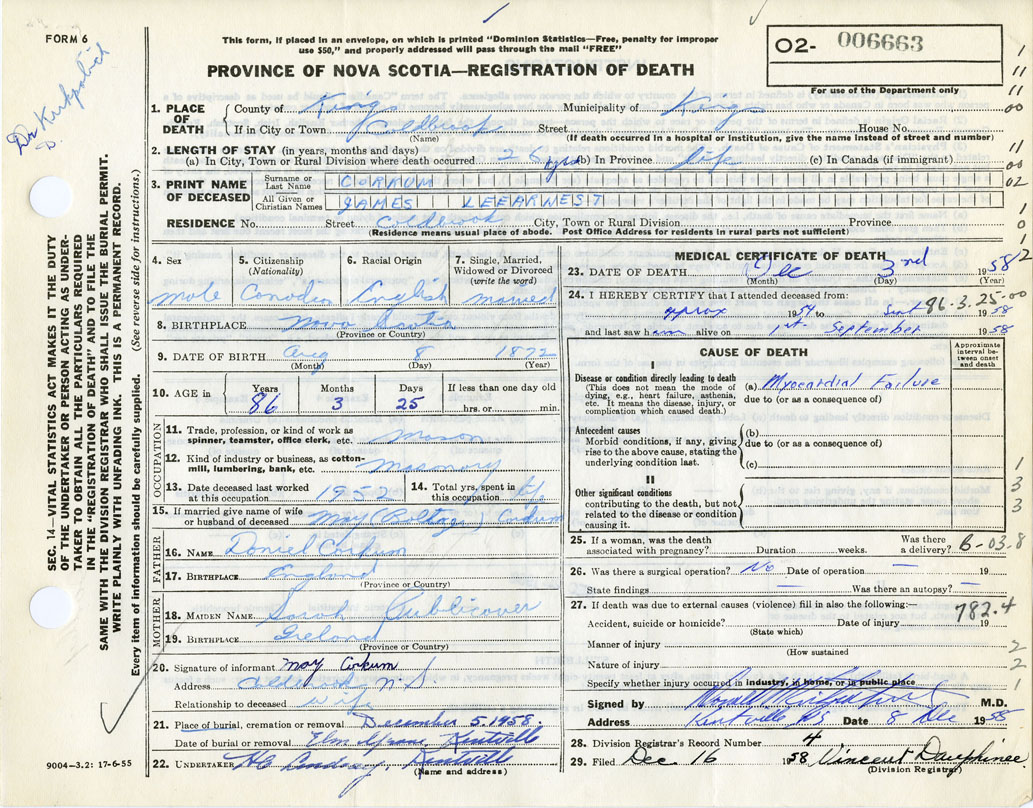 FORM 6
This form, if placed in an envelope, on which is printed "Dominion Statistics—Free, penalty for improper
use $50," and properly addressed will pass through the mail "FREE"
PROVINCE OF NOVA SCOTIA—REGISTRATION OF DEATH
O2- 006663
For use of the Department only
Dr Kirkpatrick
D.
1. PLACE OF DEATH County of Kings Municipality of Kings
If in City or Town Coldbrook Street House No.
(Name) (If death occurred in a hospital or institution, give the name instead of street and number)
2. LENGTH OF STAY (in years, months and days)
(a) In City, Town or Rural Division where death occurred 25 yrs (b) In Province life (c) In Canada (if immigrant)
3. PRINT NAME OF DECEASED Surname or Last Name CORKUM
All Given or Christian Names JAMES LEEARNEST
RESIDENCE No. Street Coldbrook City, Town or Rural Division Province
(Residence means usual place of abode. Post Office Address for residents in rural parts not sufficient)
4. Sex Male
5. Citizenship (Nationality) Canadian
6. Racial Origin English
7. Single, Married, Widowed or Divorced (write the word) married
8. BIRTHPLACE Nova Scotia
(Province or Country)
9. DATE OF BIRTH Aug 8 1872
(Month) (Day) (Year)
10. AGE in Years 86 Months 3 Days 25 If less than one day old
hrs. or min.
OCCUPATION
11. Trade, profession, or kind of work as spinner, teamster, office clerk, etc. Mason
12. Kind of industry or business, as cotton-mill, lumbering, bank, etc. Masonry
13. Date deceased last worked at this occupation 1952
14. Total yrs. spent in this occupation life
15. If married give name of wife or husband of deceased May () Corkum
FATHER
16. NAME Daniel Corkum
17. BIRTHPLACE England
(Province or Country)
MOTHER
18. MAIDEN NAME Sarah Publicover
19. BIRTHPLACE Ireland
(Province or Country)
20. Signature of informant May Corkum
Address Coldbrook N.S
Relationship to deceased Wife
21. Place of burial, cremation or removal December 5. 1958.
Date of burial or removal Elm Grove Kentville
22. UNDERTAKER Kentville
(Name and address)
MEDICAL CERTIFICATE OF DEATH
23. DATE OF DEATH Dec 3rd 1958
(Month) (Day) (Year)
24. I HEREBY CERTIFY that I attended deceased from:
aprox 1954 to Sept 1958
86-3.25-00
and last saw him alive on 1st September 1958
CAUSE OF DEATH
Approximate interval between onset and death
I
Disease or condition directly leading to death
(This does not mean the mode of dying, e.g., heart failure, asthenia, etc. It means the disease, injury, or complication which caused death.)
(a) Myocardial Failure
due to (or as a consequence of)
Antecedent causes
Morbid conditions, if any, giving rise to the above cause, stating the underlying condition last.
(b)
due to (or as a consequence of)
(c)
II
Other significant conditions
contributing to the death, but not related to the disease or condition causing it.
25. If a woman, was the death associated with pregnancy? Duration weeks. Was there a delivery?
6-03.8
26. Was there a surgical operation? No Date of operation — 19
State findings — Was there an autopsy? —
27. If death was due to external causes (violence) fill in also the following:—
782.4
Accident, suicide or homicide? Date of injury 19
(State which)
Manner of injury
(How sustained
Nature of injury
Specify whether injury occurred in industry, in home, or in public place
Signed by M.D.
Address Kentville NS Date 8 Dec 1958
28. Division Registrar's Record Number 4
29. Filed Dec 16 1958 Vincent Dauphinee
(Division Registrar)
SEC. 14—VITAL STATISTICS ACT MAKES IT THE DUTY
OF THE UNDERTAKER OR PERSON ACTING AS UNDER-
TAKER TO OBTAIN ALL THE PARTICULARS REQUIRED
IN THE "REGISTRATION OF DEATH" AND TO FILE THE
SAME WITH THE DIVISION REGISTRAR WHO SHALL ISSUE THE BURIAL PERMIT.
WRITE PLAINLY WITH UNFADING INK. THIS IS A PERMANENT RECORD.
Every item of information should be carefully supplied. (See reverse side for instructions.)
9004—3.2: 17-6-55
1
11
11
00
11
00
02
1
0
1
2
1
3
3
2
2
1